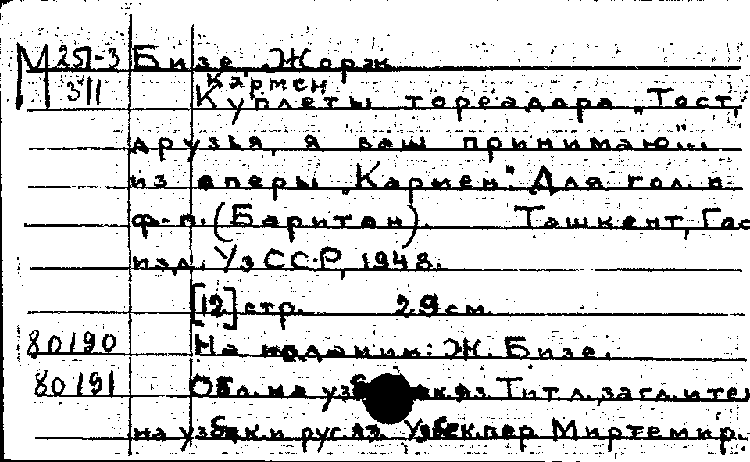 М 251-3 Бизе Жорж
311 Кармен
Куплеты тореадора „Тост,
друзья, я ваш принимаю"...
из оперы „Кармен". Для гол. и
ф-п. (Баритон). Ташкент, Гос
изд. УзССР, 1948.
[12] стр. 29 см.
80190 На подзним: Ж. Бизе.
80191 Обл. на узбек. яз. Тит. л., загл. и тек
на узбек. и рус. яз. Узбек. пер Миртемир.